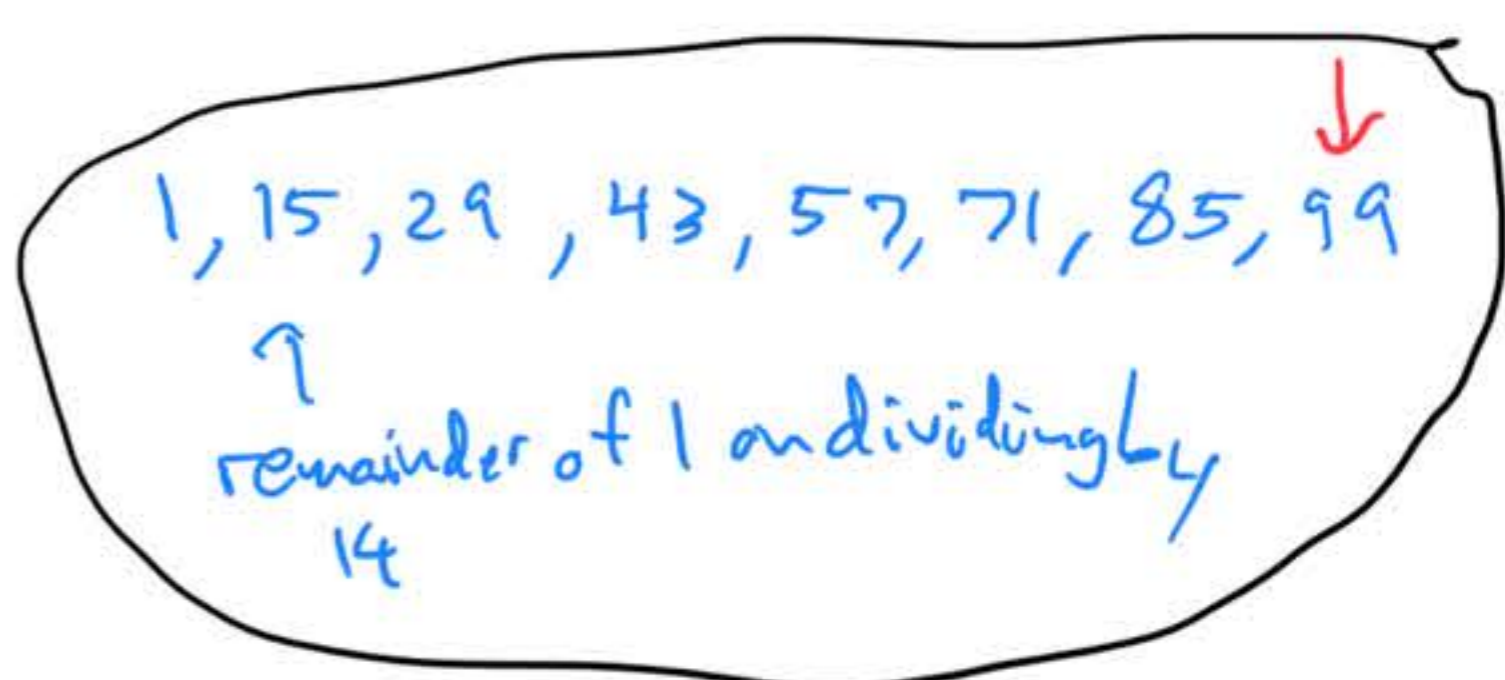 1, 15, 29, 43, 57, 71, 85, 99
remainder of 1 on dividing by
14